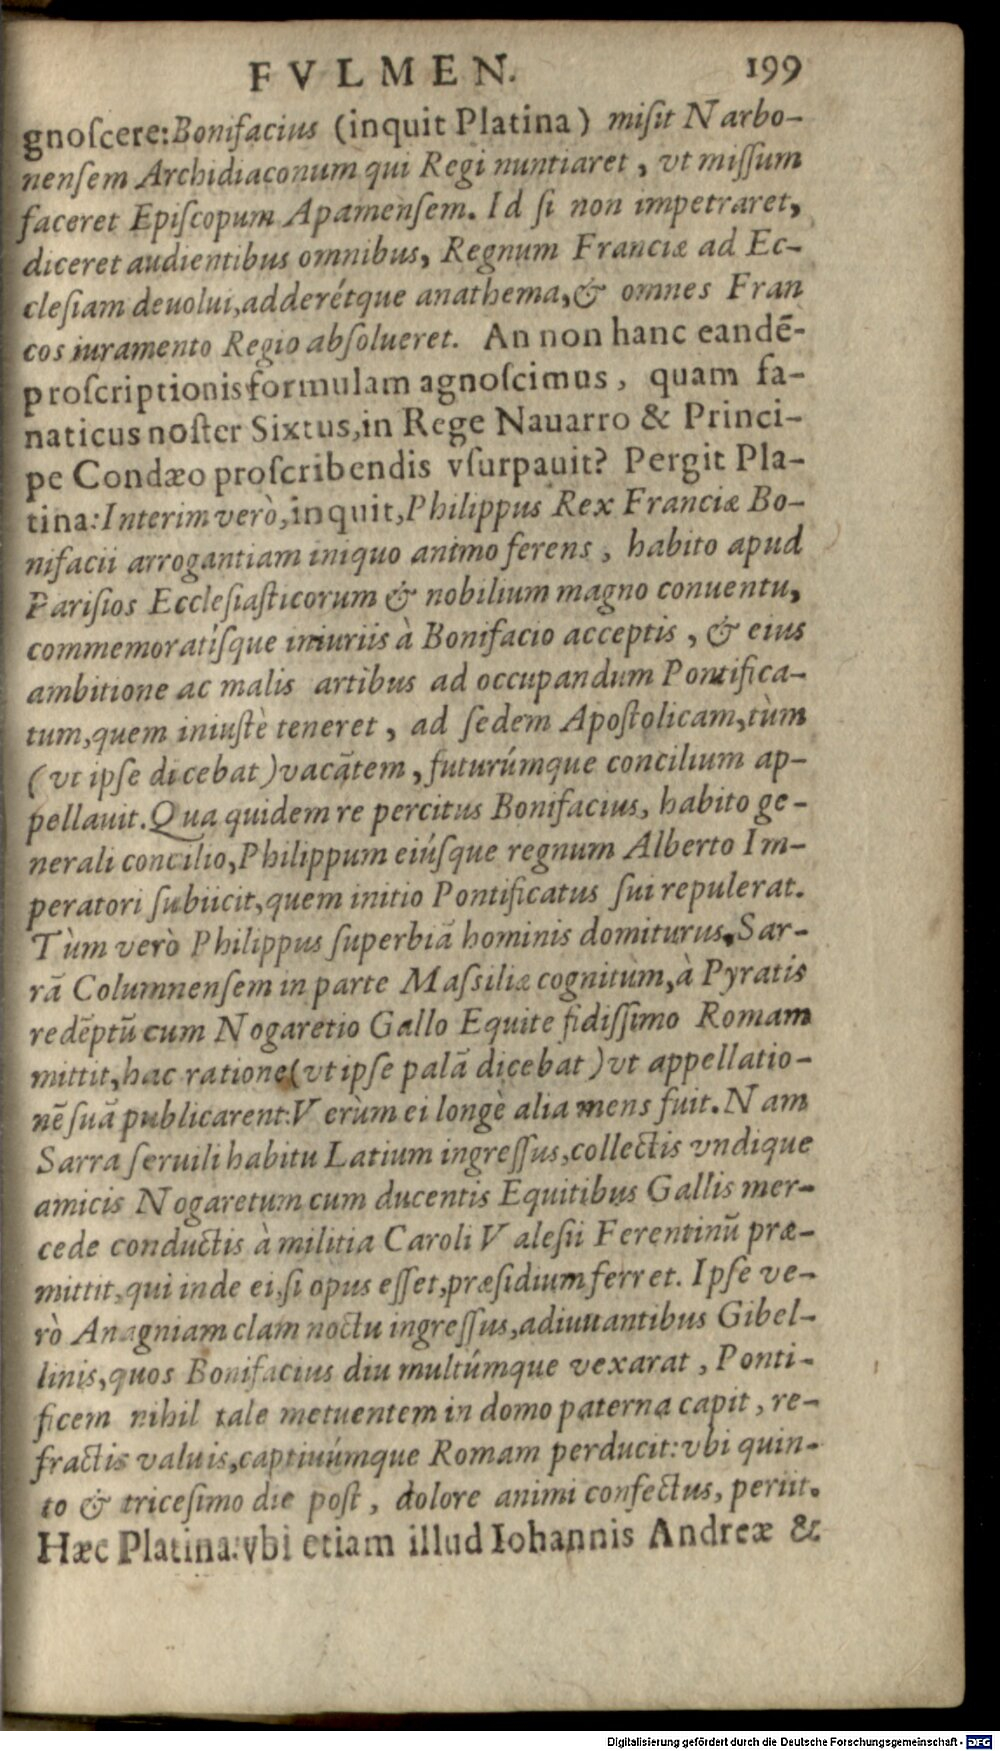 FVLMEN. 199
gnoſcere: Bonifacius (inquit Platina) miſit Narbo-
nenſem Archidiaconum qui Regi nuntiaret, vt miſſum
faceret Epiſcopum Apamenſem. Id ſi non impetraret,
diceret audientibus omnibus, Regnum Franciæ ad Ec-
cleſiam deuolui, adderétque anathema, & omnes Fran
cos iuramento Regio abſolueret. An non hanc eandē-
proſcriptionis formulam agnoſcimus, quam fa-
naticus noſter Sixtus, in Rege Nauarro & Princi-
pe Condæo proſcribendis vſurpauit? Pergit Pla-
tina: Interim verò, inquit, Philippus Rex Franciæ Bo-
nifacii arrogantiam iniquo animo ferens, habito apud
Pariſios Eccleſiaſticorum & nobilium magno conuentu,
commemoratíſque iniuriis à Bonifacio acceptis, & eius
ambitione ac malis artibus ad occupandum Pontifica-
tum, quem iniuſtè teneret, ad ſedem Apoſtolicam, tùm
(vt ipſe dicebat) vacātem, futurúmque concilium ap-
pellauit. Qua quidem re percitus Bonifacius, habito ge-
nerali concilio, Philippum eiúſque regnum Alberto Im-
peratori ſubiicit, quem initio Pontificatus ſui repulerat.
Tùm verò Philippus ſuperbiā hominis domiturus, Sar-
rā Columnenſem in parte Maſsiliæ cognitùm, à Pyratis
redēptū cum Nogaretio Gallo Equite fidiſſimo Romam
mittit, hac ratione (vt ipſe palā dicebat) vt appellatio-
nē ſuā publicarent: Verùm ei longè alia mens fuit. Nam
Sarra ſeruili habitu Latium ingreſſus, collectis vndique
amicis Nogaretum cum ducentis Equitibus Gallis mer-
cede conductis à militia Caroli Valeſii Ferentinū præ-
mittit, qui inde ei, ſi opus eſſet, præſidium ferret. Ipſe ve-
rò Anagniam clam noctu ingreſſus, adiuuantibus Gibel-
linis, quos Bonifacius diu multúmque vexarat, Ponti-
ficem nihil tale metuentem in domo paterna capit, re-
fractis valuis, captiuúmque Romam perducit: vbi quin-
to & triceſimo die poſt, dolore animi confectus, periit.
Hæc Platina: vbi etiam illud Iohannis Andreæ &
Digitalisierung gefördert durch die Deutsche Forschungsgemeinschaft - DFG